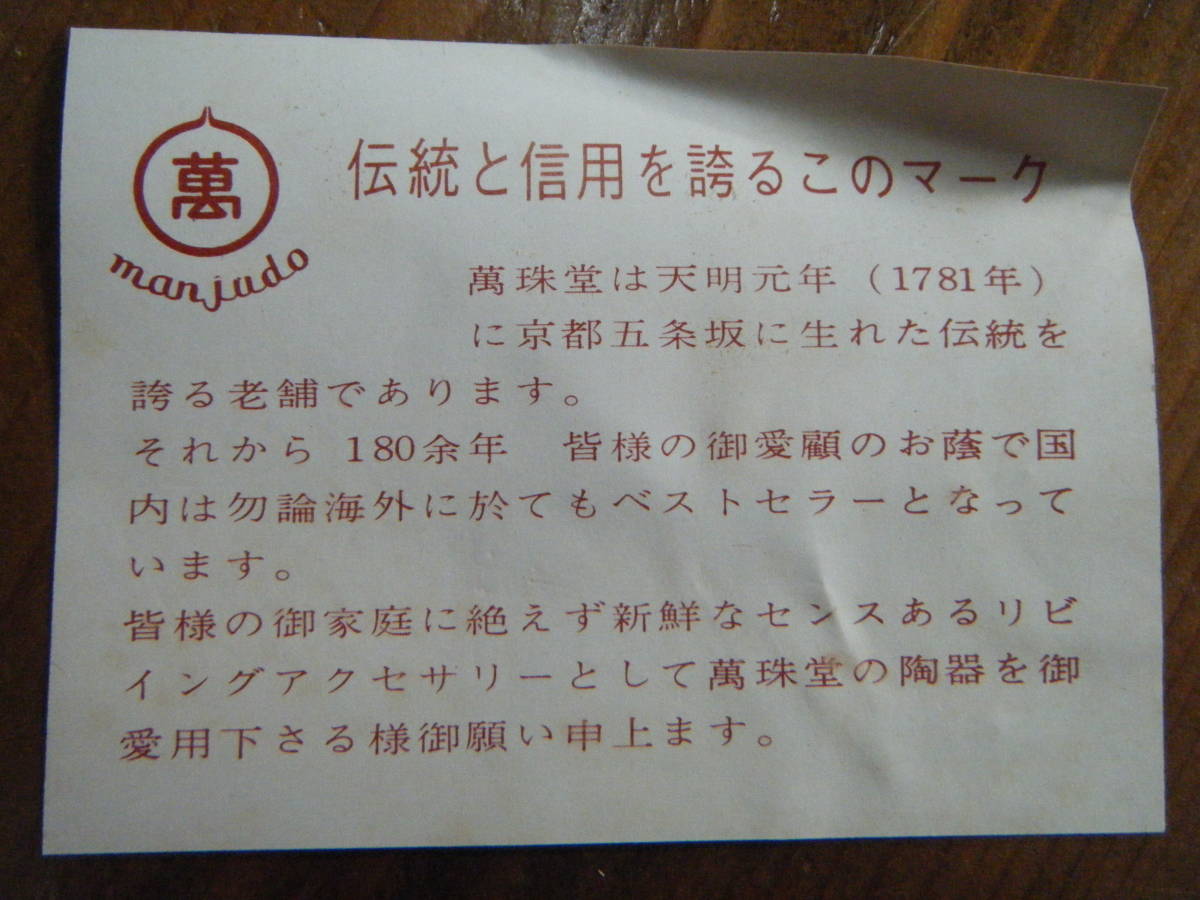 萬
manjudo
伝統と信用を誇るこのマーク
萬珠堂は天明元年（1781年）
に京都五条坂に生れた伝統を
誇る老舗であります。
それから 180余年　皆様の御愛顧のお蔭で国
内は勿論海外に於てもベストセラーとなって
います。
皆様の御家庭に絶えず新鮮なセンスあるリビ
イングアクセサリーとして萬珠堂の陶器を御
愛用下さる様御願い申上ます。